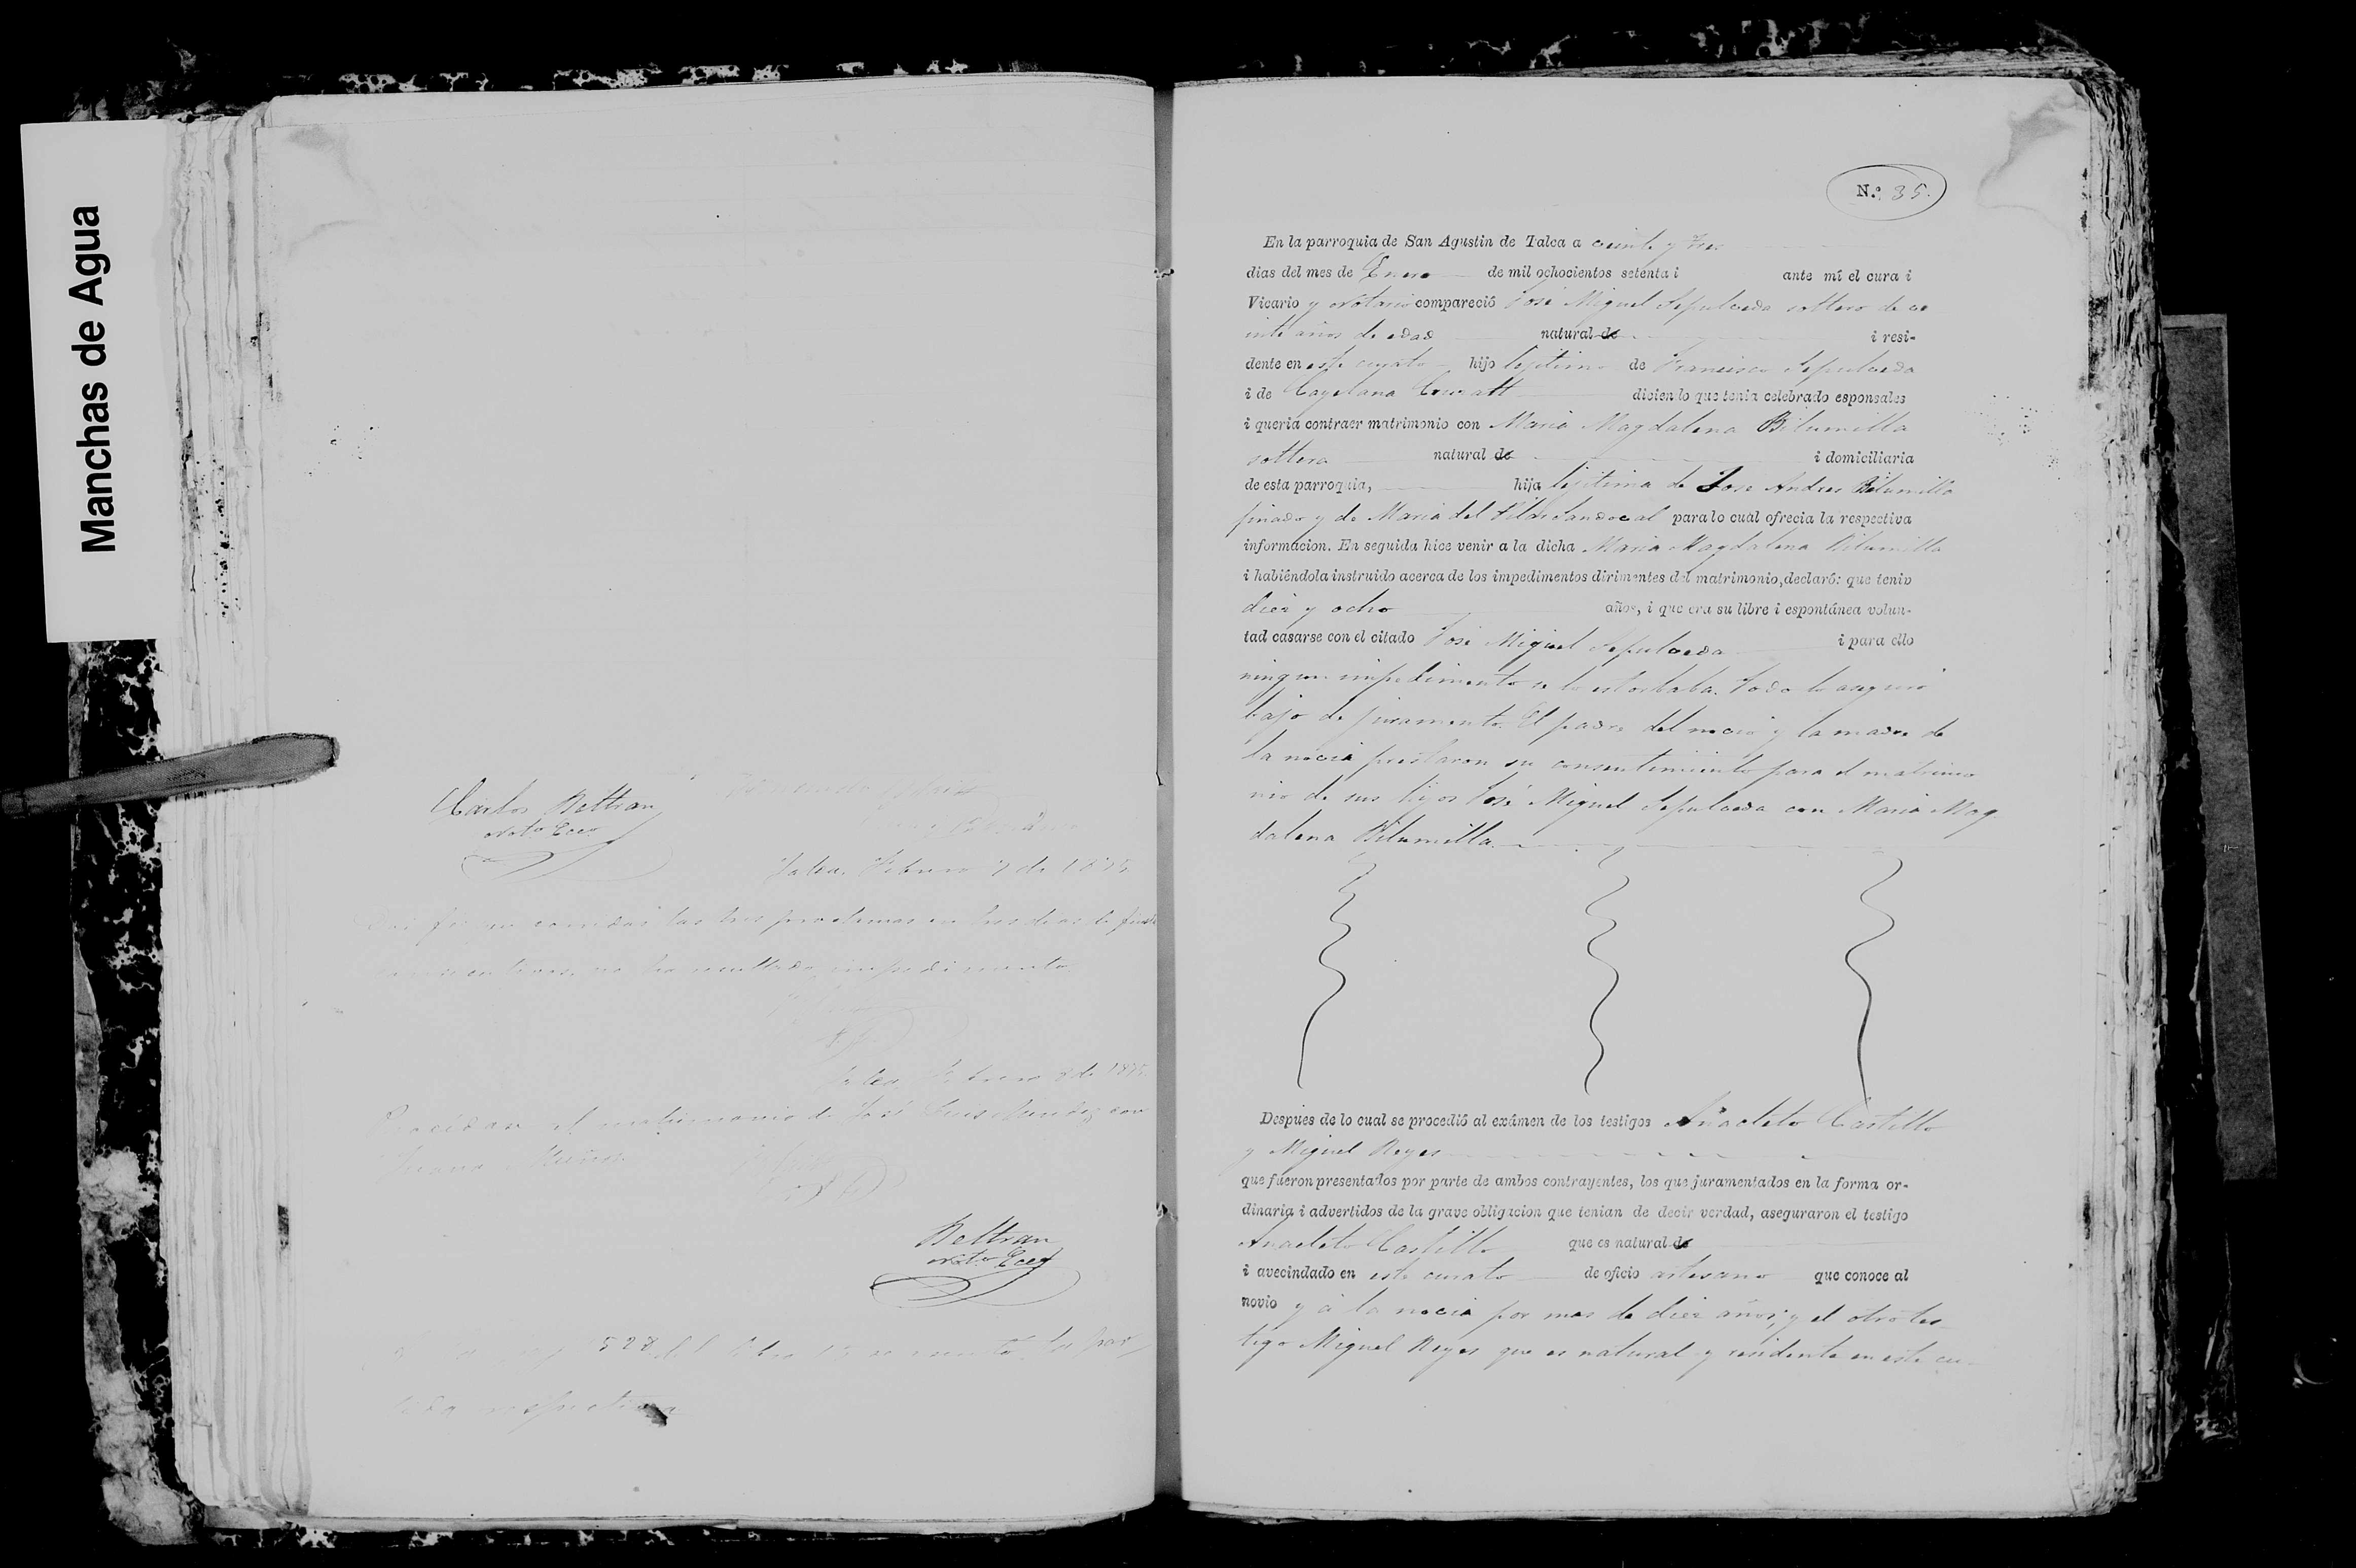 Manchas de Agua
Carlos Beltran
Noto Eceo
Talca. Febrero 7 de 1875
las tres proclamas en tres dias
no ha resultado impedimento
Talca, Febrero 8 de 1875
Procédase al matrimonio de José Luis con
Juana Muñoz
Beltran
Noto Eceo
528 del libro
respectiva
No. 35.
En la parroquia de San Agustin de Talca a veinte y tres
dias del mes de Enero de mil ochocientos setenta i ante mí el cura i
Vicario y Notario compareció José Miguel Sepulveda soltero de ve
inte años de edad natural de i resi-
dente en este curato hijo lejitimo de Francisco Sepulveda
i de Cayetana diciendo que tenia celebrado esponsales
i queria contraer matrimonio con Maria Magdalena Bilumilla
soltera natural de i domiciliaria
de esta parroquia, hija lejitima de Jose Andres Bilumilla
finado y de Maria del Pilar Sandoval para lo cual ofrecia la respectiva
informacion. En seguida hice venir a la dicha Maria Magdalena Bilumilla
i habiéndola instruido acerca de los impedimentos dirimentes del matrimonio, declaró: que teniv
diez y ocho años, i que era su libre i espontánea volun-
tad casarse con el citado José Miguel Sepulveda i para ello
ningun impedimento se lo estorbaba. Todo lo aseguró
bajo de juramento. El padre del novio y la madre de
la novia prestaron su consentimiento para el matrimo
nio de sus hijos José Miguel Sepulveda con Maria Mag
dalena Bilumilla.
Despues de lo cual se procedió al exámen de los testigos Anacleto Castillo
y Miguel Reyes
que fueron presentados por parte de ambos contrayentes, los que juramentados en la forma or-
dinaria i advertidos de la grave obligacion que tenian de decir verdad, aseguraron el testigo
Anacleto Castillo que es natural de
i avecindado en este curato de oficio artesano que conoce al
novio y a la novia por mas de diez años; y el otro tes
tigo Miguel Reyes que es natural y residente en este cu-